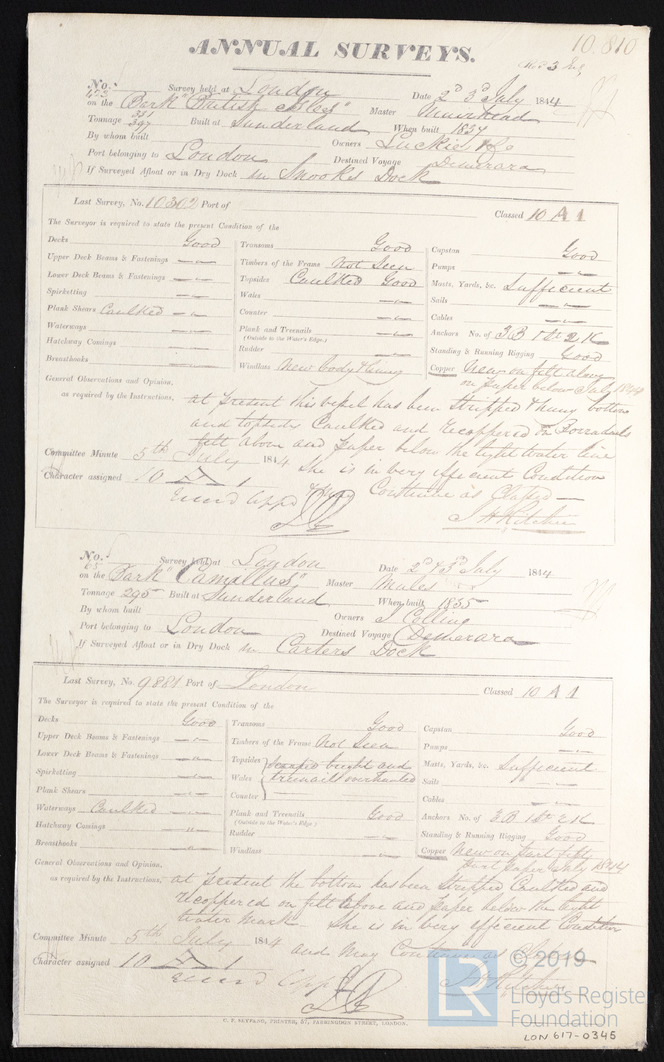 10.810
ANNUAL SURVEYS.
No. 423 Survey held at London Date 2d 3d July 1844
on the Bark "British Isles" Master Muirhead
Tonnage 351 Built at Sunderland When built
By whom built Owners Luckie & Co
Port belonging to London Destined Voyage Demerara
If Surveyed Afloat or in Dry Dock in Snooks Dock
Last Survey, No. 10302 Port of Classed 10 A 1
The Surveyor is required to state the present Condition of the
Decks Good
Upper Deck Beams & Fastenings
Lower Deck Beams & Fastenings
Spirketting
Plank Shears Caulked
Waterways
Hatchway Comings
Breasthooks
Transoms Good
Timbers of the Frame Not Seen
Topsides Caulked Good
Wales
Counter
Plank and Treenails
(Outside to the Water's Edge.)
Rudder
Windlass New body & lining
Capstan Good
Pumps
Masts, Yards, &c. Sufficient
Sails
Cables
Anchors No. of 3B 1St 2 K
Standing & Running Rigging Good
Copper New on felt above
on paper below July 1844
General Observations and Opinion,
as required by the Instructions,
at present this vessel has been Stripped & hung bottom
and topsides Caulked and recoppered on Borradaile
felt above and paper below the light water line
Committee Minute 5th July 1844 She is in very efficient Condition
Character assigned 10 A 1 Continue as Classed
J H Ritchie
No. 65 Survey held at London Date 2d & 3d July 1844
on the Bark "Camillus" Master
Tonnage 295 Built at Sunderland When built 1835
By whom built Owners J Colling
Port belonging to London Destined Voyage Demerara
If Surveyed Afloat or in Dry Dock in Carters Dock
Last Survey, No. 9881 Port of London Classed 10 A 1
The Surveyor is required to state the present Condition of the
Decks Good
Upper Deck Beams & Fastenings
Lower Deck Beams & Fastenings
Spirketting
Plank Shears
Waterways Caulked
Hatchway Comings
Breasthooks
Transoms Good
Timbers of the Frame Not Seen
Topsides scraped bright and
Wales treenails overhauled
Counter
Plank and Treenails Good
(Outside to the Water's Edge.)
Rudder
Windlass
Capstan Good
Pumps
Masts, Yards, &c. Sufficient
Sails
Cables
Anchors No. of 3B 1St 2 K
Standing & Running Rigging Good
Copper New on part felt
part paper July 1844
General Observations and Opinion,
as required by the Instructions,
at present the bottom has been Stripped Caulked and
recoppered on felt above and paper below the light
water Mark She is in very efficient Condition
Committee Minute 5th July 1844 and may Continue as Classed
Character assigned 10 A 1
J H Ritchie
C. F. SEYFANG, PRINTER, 57, FARRINGDON STREET, LONDON.
LR © 2019
Lloyd's Register
Foundation
LON 617-0345